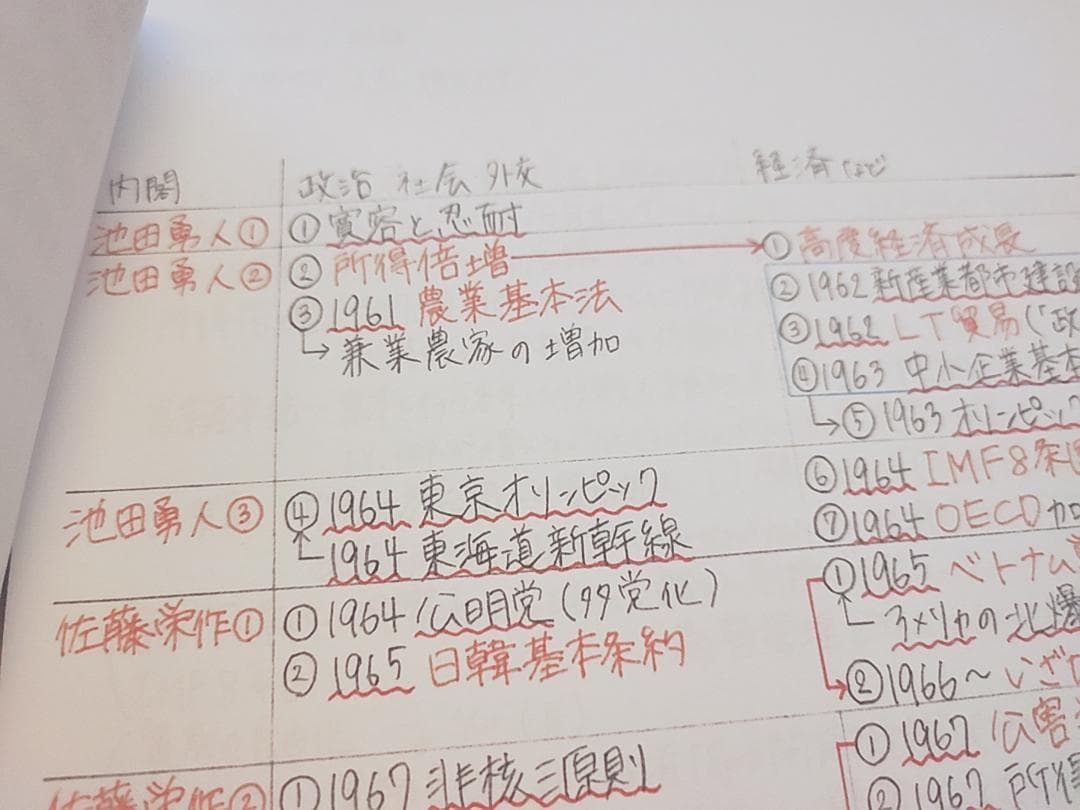 内閣 政治 社会 外交 経済など
池田勇人① ①寛容と忍耐 ①高度経済成長
池田勇人② ②所得倍増 ②1962新産業都市建設
③1961 農業基本法 ③1962 LT貿易(「政
↳兼業農家の増加 ④1963 中小企業基本
↳⑤1963 オリンピック
⑥1964 IMF8条
池田勇人③ ④1964 東京オリンピック ⑦1964 OECD加
1964 東海道新幹線 ①1965 ベトナム
佐藤栄作① ①1964 公明党(多党化) アメリカの北爆
②1965 日韓基本条約 ②1966〜いざ
佐藤栄作② ①1967 非核三原則 ①1967 公害
②1967 所得